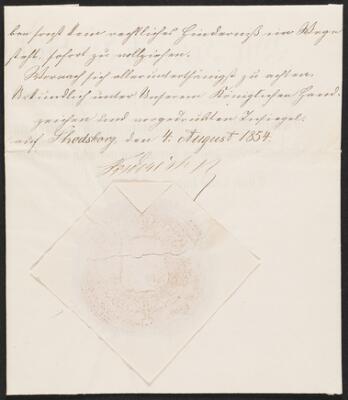 ben sonst kein rechtliches Hinderniß im Wege
steht, sofort zu vollziehen.
Wornach sich allerunterthänigst zu achten.
Urkundlich unter Unserem Königlichen Hand-
zeichen und vorgedruckten Insiegel.
auf Skodsborg, den 4. August 1854.
Frederik R